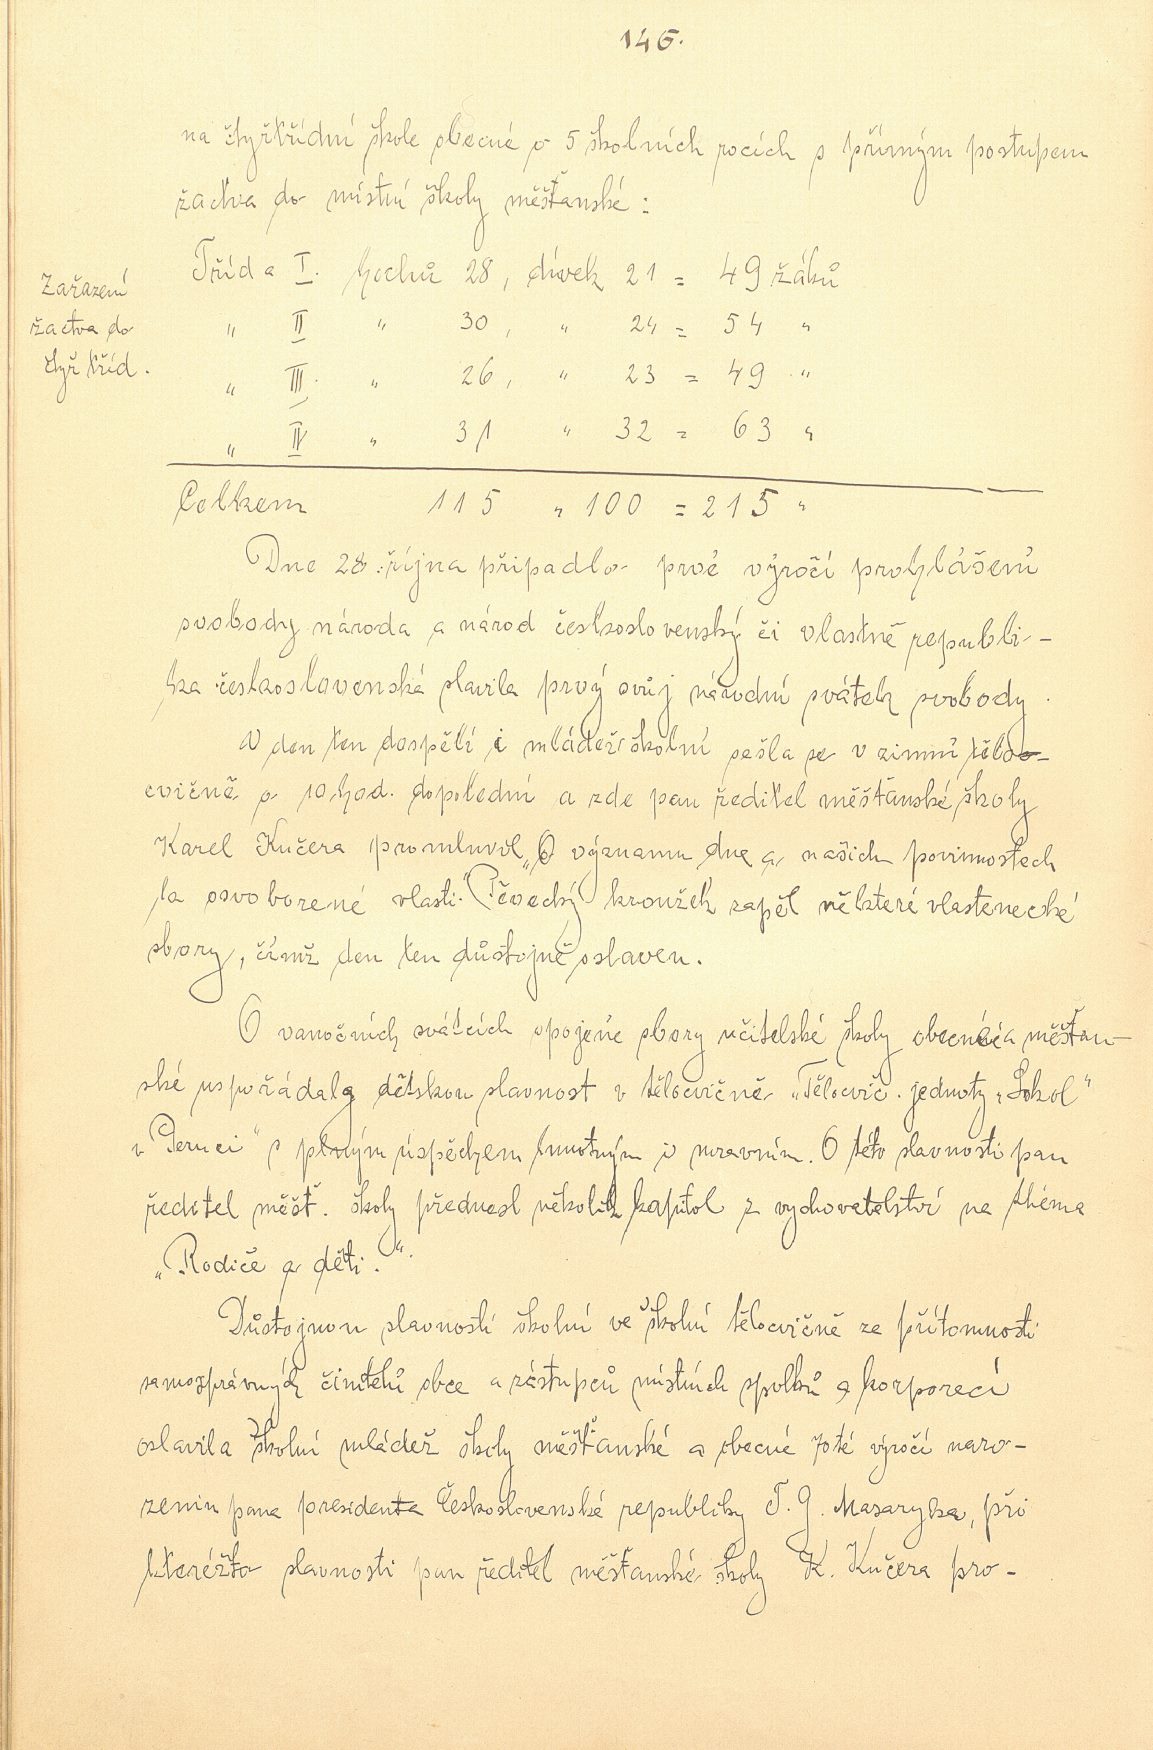 146.
na čtyřtřídní škole obecné o 5 školních rocích s přímým postupem
žactva do místní školy měšťanské:
Zařazení
žactva do
čtyř tříd.
Třída I. hochů 28, dívek 21 = 49 žáků
„ II „ 30, „ 24 = 54 „
„ III. „ 26, „ 23 = 49 „
„ IV „ 31 „ 32 = 63 „
Celkem 115 „ 100 = 215 „
Dne 28. října připadlo prvé výročí prohlášení
svobody národa a národ československý či vlastně republi-
ka československá slavila prvý svůj národní svátek svobody.
V den ten dospělí i mládež školní sešla se v zimní tělo-
cvičně o 10 hod. dopolední a zde pan ředitel měšťanské školy
Karel Kučera promluvil „O významu dne a našich povinnostech
k osvobozené vlasti." Pěvecký kroužek zapěl některé vlastenecké
sbory, čímž den ten důstojně oslaven.
O vánočních svátcích spojené sbory učitelské školy obecné a měšťan-
ské uspořádaly dětskou slavnost v tělocvičně „Tělocvič. jednoty „Sokol"
v Peruci" s plným úspěchem hmotným i mravním. O této slavnosti pan
ředitel měšť. školy přednesl několik kapitol z vychovatelství na théma
„Rodiče a děti.".
Důstojnou slavností školní ve školní tělocvičně ze přítomnosti
samosprávných činitelů obce a zástupců místních spolků a korporací
oslavila školní mládež školy měšťanské a obecné 70té výročí naro-
zenin pana presidenta Československé republiky T. G. Masaryka, při
kteréžto slavnosti pan ředitel měšťanské školy K. Kučera pro-